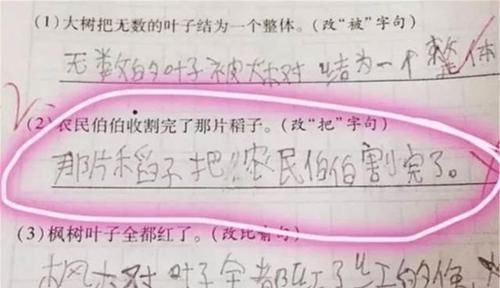 (1)大树把无数的叶子结为一个整体。(改“被”字句)
无数的叶子被大树结为一个整体
(2)农民伯伯收割完了那片稻子。(改“把”字句)
那片稻子把农民伯伯割完了。
(3)枫树叶子全都红了。(改比喻句)
枫树叶子全都红了